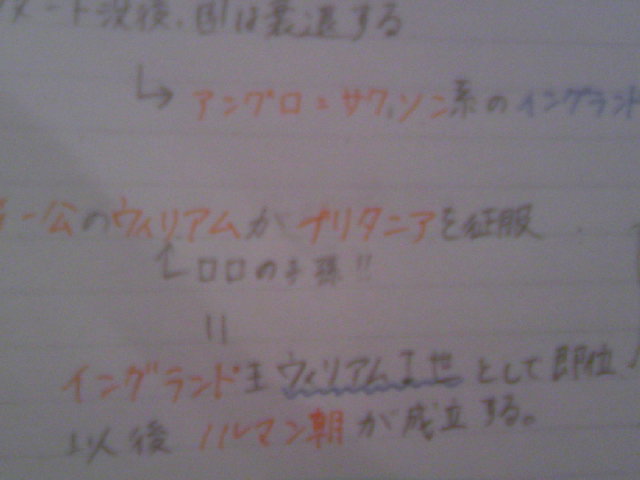 ート没後、国は衰退する
↳ アングロ=サクソン系のイングランド
公のウィリアムがブリタニアを征服
↳ロロの子孫!!
||
イングランド王ウィリアムⅠ世として即位
以後ノルマン朝が成立する。